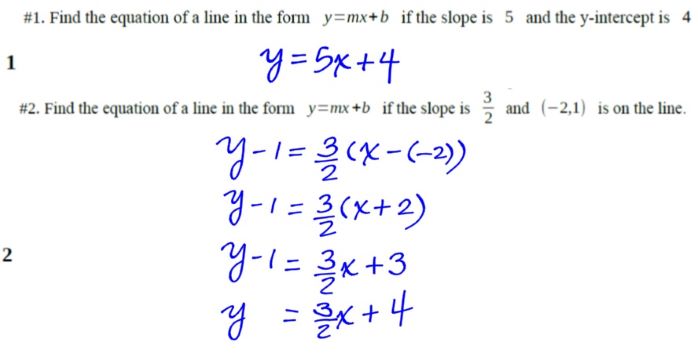 #1. Find the equation of a line in the form y=mx+b if the slope is 5 and the y-intercept is 4
1
y = 5x + 4
#2. Find the equation of a line in the form y=mx+b if the slope is 3/2 and (-2,1) is on the line.
y - 1 = 3/2 (x - (-2))
y - 1 = 3/2 (x + 2)
2
y - 1 = 3/2 x + 3
y = 3/2 x + 4